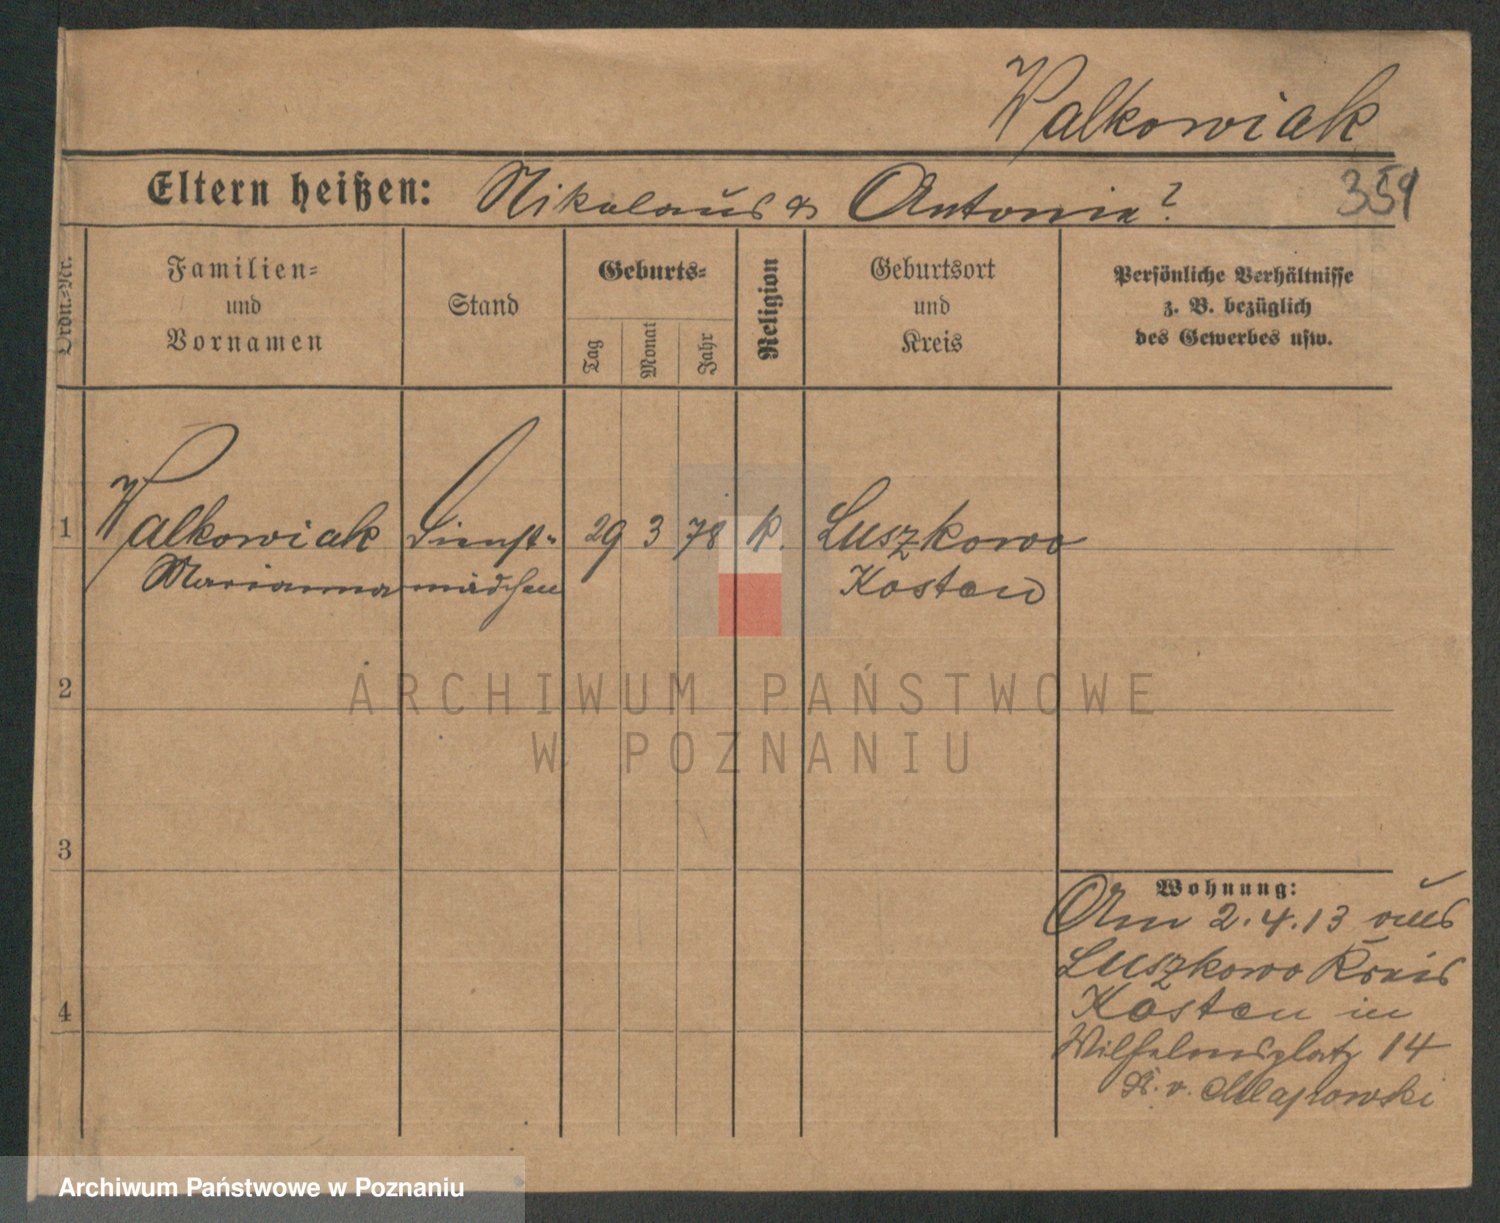 Walkowiak
Eltern heißen: Nikolaus & Antonie?
359
Ordn.-Nr.
Familien-
und
Vornamen
Stand
Geburts-
Tag
Monat
Jahr
Religion
Geburtsort
und
Kreis
Persönliche Verhältnisse
z. B. bezüglich
des Gewerbes usw.
1 Walkowiak Dienst- 29 3 78 k. Luszkowo
Marianna mädchen Kosten
2
3
4
Wohnung:
Am 2.4.13 aus
Luszkowo Kreis
Kosten in
Wilhelmsplatz 14
b. v.
ARCHIWUM PAŃSTWOWE
W POZNANIU
Archiwum Państwowe w Poznaniu